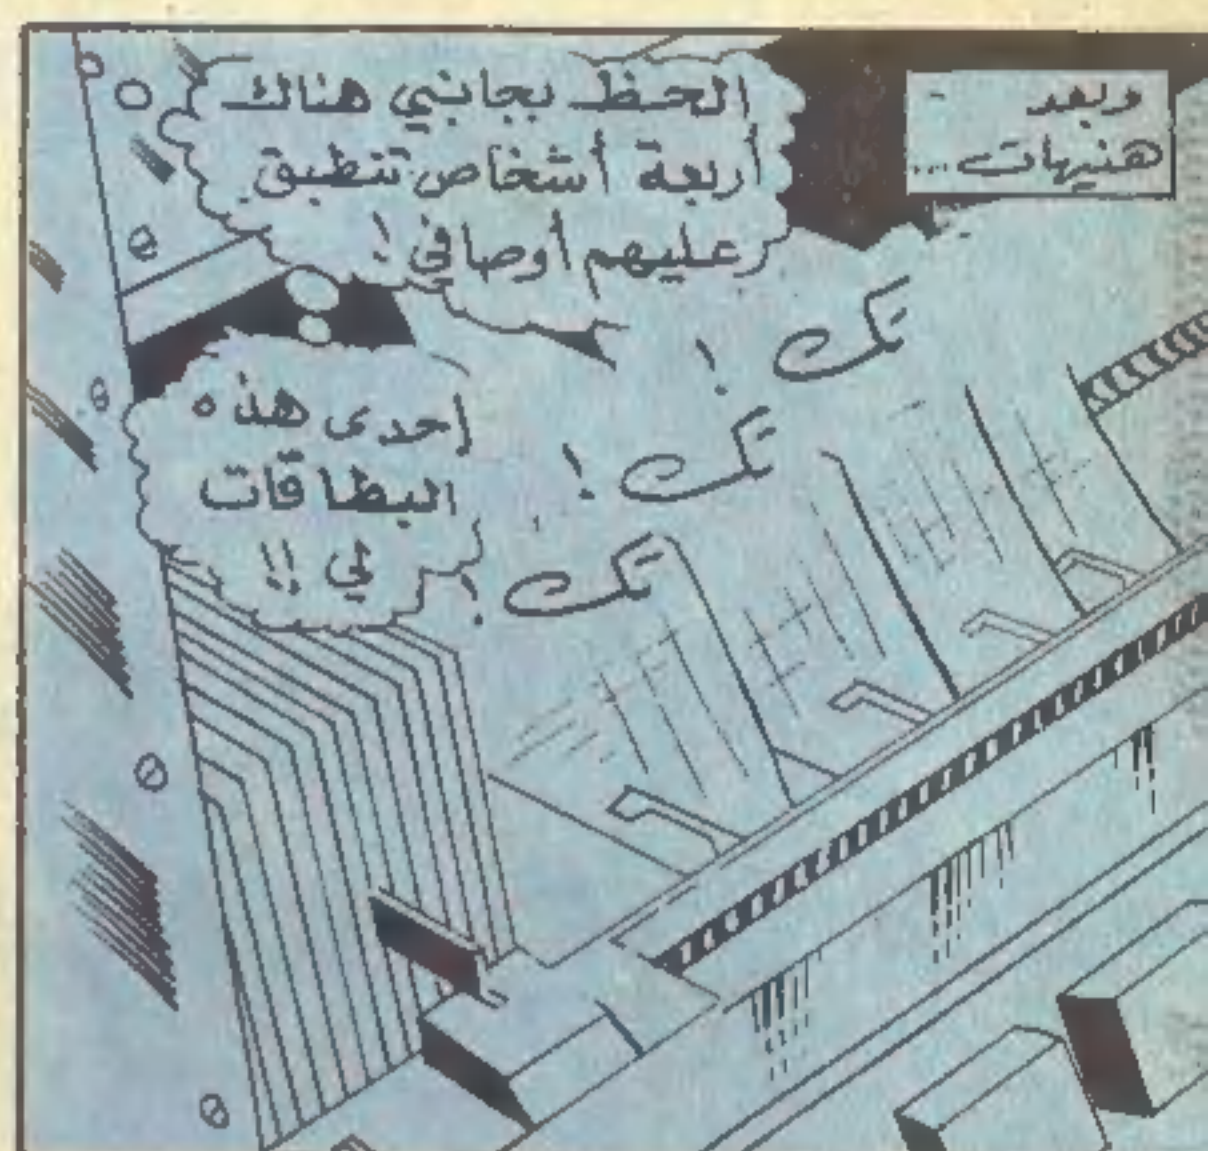 وبعد
هنيهات...
الحظ بجانبي هناك
أربعة أشخاص تنطبق
عليهم أوصافي!
إحدى هذه
البطاقات
لي!!
تك!
تك!
تك!